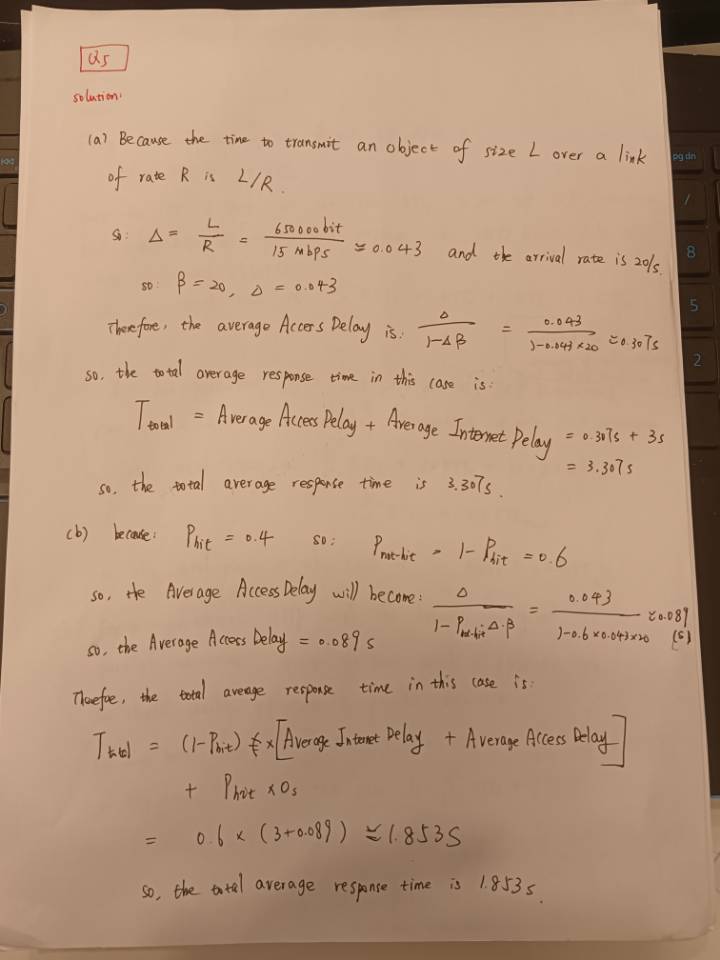 Q5
solution:
(a) Because the time to transmit an object of size L over a link
of rate R is L/R.
So: Δ = L/R = 650000bit/15 Mbps ≌ 0.043 and the arrival rate is 20/s.
so: β = 20, Δ = 0.043
Therefore, the average Access Delay is: Δ/1-Δβ = 0.043/1-0.043×20 ≌ 0.307s
so, the total average response time in this case is:
T total = Average Access Delay + Average Internet Delay = 0.307s + 3s
= 3.307s
so, the total average response time is 3.307s.
(b) because: Phit = 0.4 so: Pnot-hit = 1-Phit = 0.6
so, the Average Access Delay will become: Δ/1-Pnot-hit Δ·β = 0.043/1-0.6×0.043×20 ≌ 0.089 (s)
so, the Average Access Delay = 0.089 s
Therefoe, the total aveage response time in this case is:
T total = (1-Phit) × [Average Internet Delay + Average Access Delay]
+ Phit × 0s
= 0.6 × (3+0.089) ≌ 1.853S
so, the total average response time is 1.853s.
pg dn
/
8
5
2